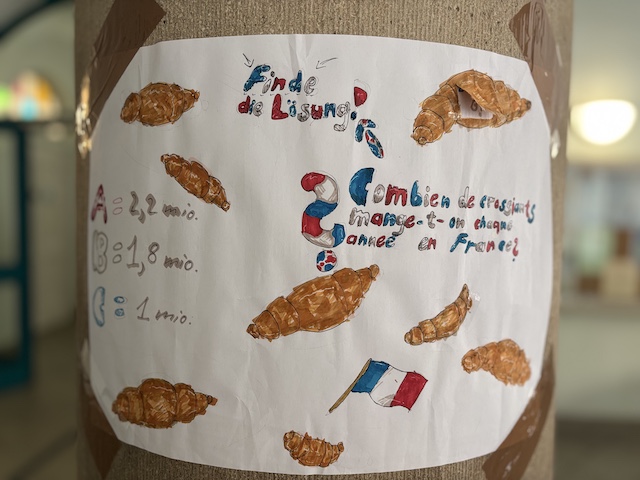 Finde
die Lösung!
A: 2,2 mio.
B: 1,8 mio.
C: 1 mio.
Combien de croissiants
mange-t-on chaque
année en France?